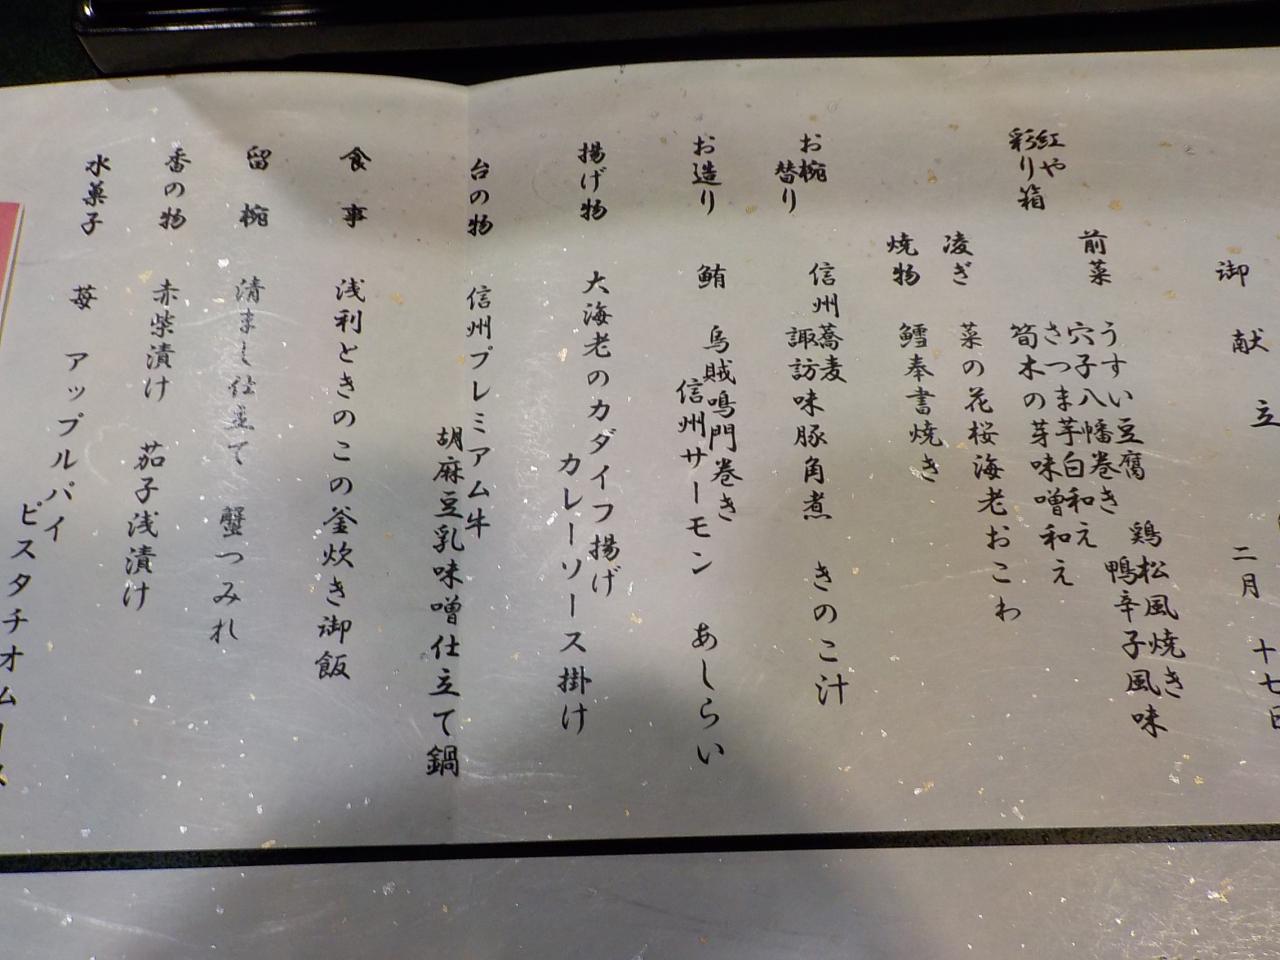 御献立
二月十七日
紅や
彩り箱
前菜
うすい豆腐
鶏松風焼き
穴子八幡巻き
鴨辛子風味
さつま芋白和え
筍木の芽味噌和え
凌ぎ
菜の花桜海老おこわ
焼物
鱈奉書焼き
お椀
替り
信州蕎麦
諏訪味豚角煮 きのこ汁
お造り
鮪 烏賊鳴門巻き
信州サーモン あしらい
揚げ物
大海老のカダイフ揚げ
カレーソース掛け
台の物
信州プレミアム牛
胡麻豆乳味噌仕立て鍋
食事
浅利ときのこの釜炊き御飯
留椀
清まし仕立て 蟹つみれ
香の物
赤柴漬け 茄子浅漬け
水菓子
苺 アップルパイ
ピスタチオムース